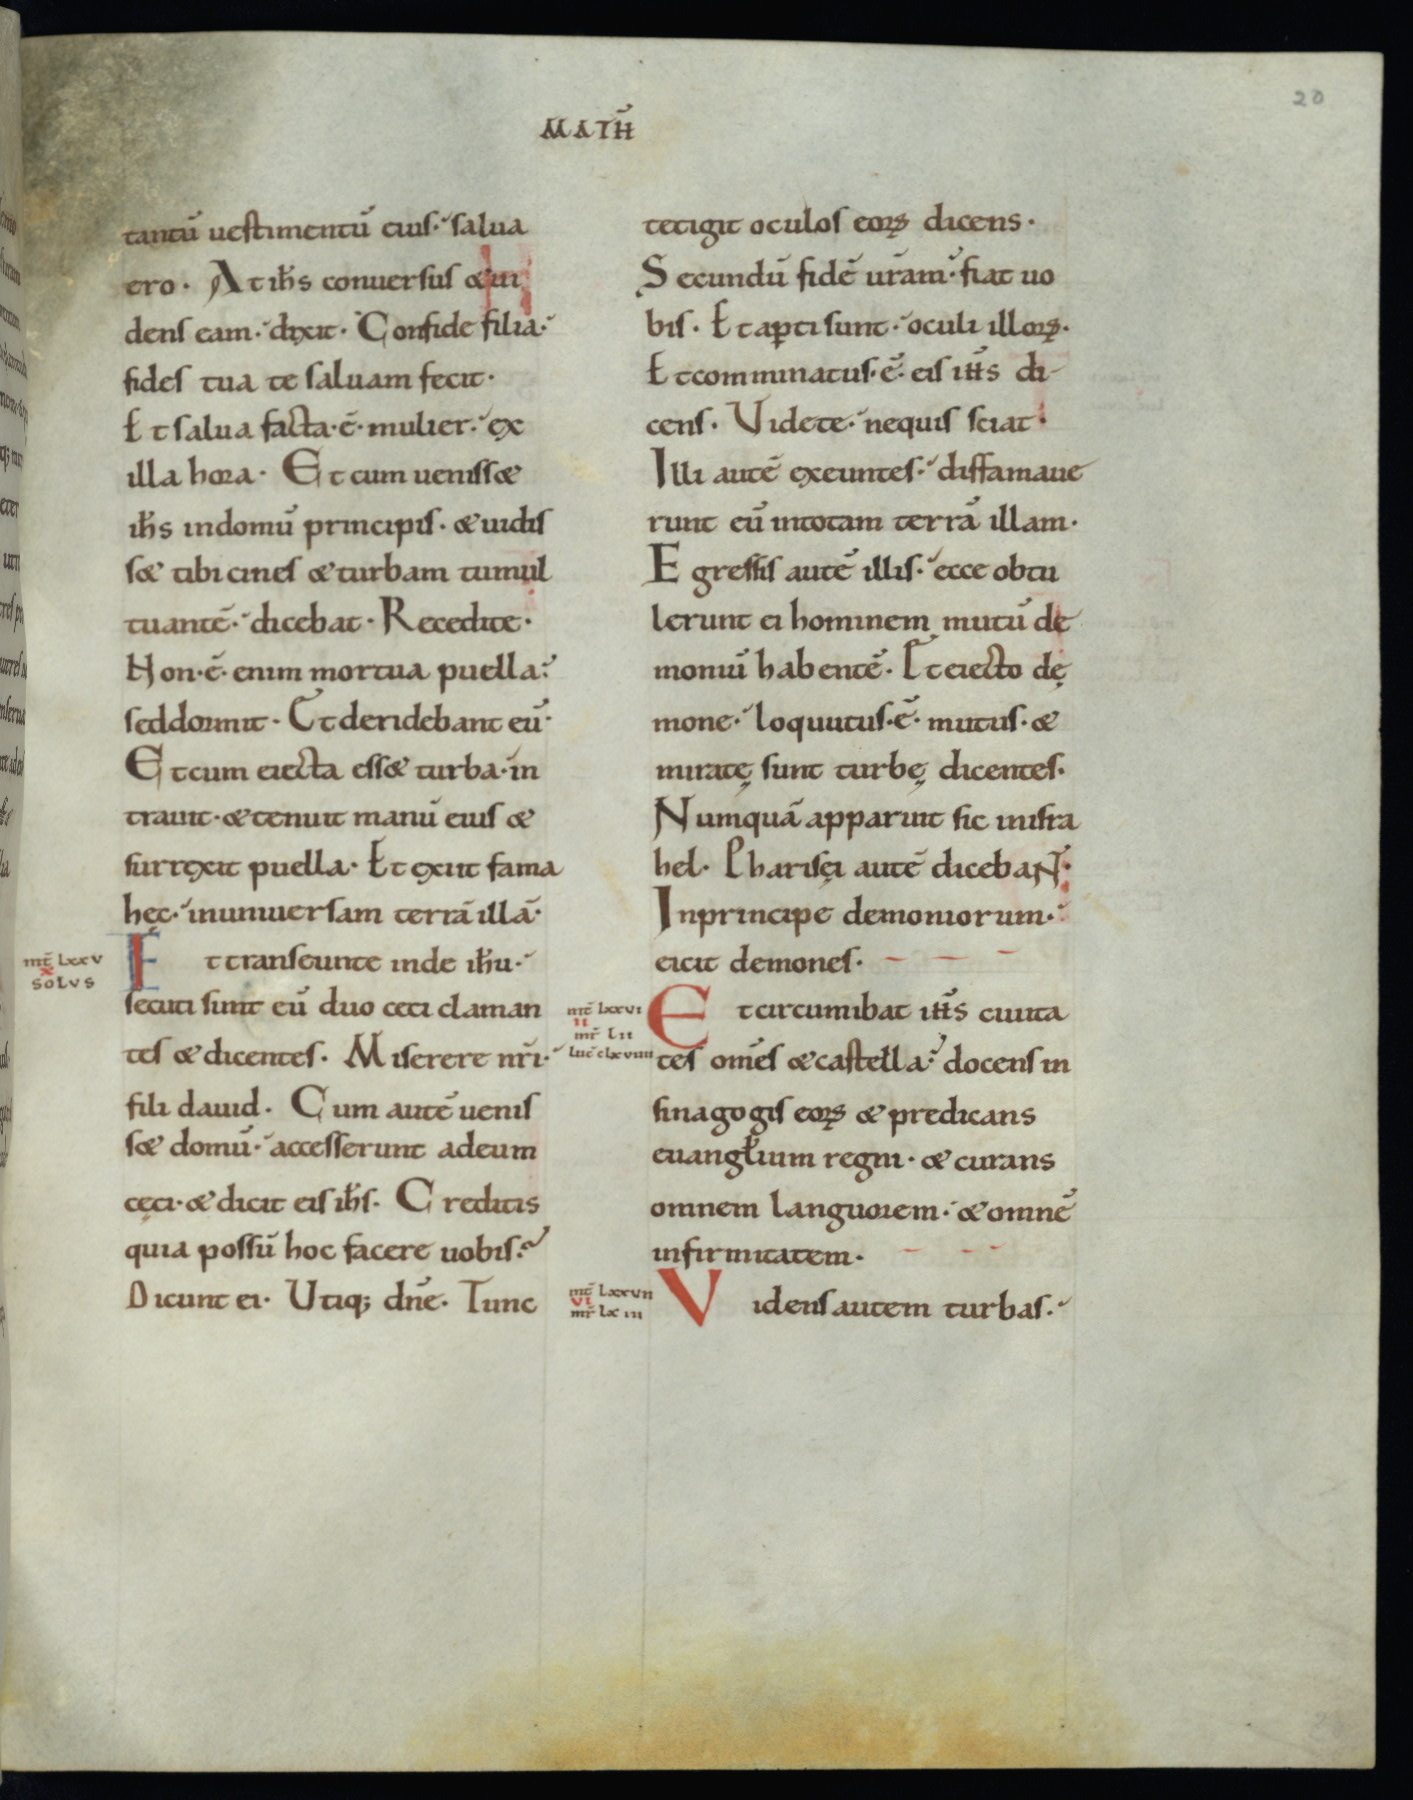 MATH̄
20
tantū uestimentū eius. salua
ero. At ih̄s conuersus & ui
dens eam. dixit. Confide filia.
fides tua te saluam fecit.
Et salua facta. ē. mulier. ex
illa hora. Et cum uenisset
ih̄s indomū principis. & uidis
s& tibicines & turbam tumul
tuantē. dicebat. Recedite.
Non. ē. enim mortua puella.
seddormit. Et deridebant eū.
Et cum eiecta ess& turba. in
trauit. & tenuit manū eius &
surrexit puella. Et exiit fama
hęc. inuniuersam terrā illā.
mt̄ lxxv
x
solus
Et transeunte inde ih̄u.
secuti sunt eū duo ceci claman
tes & dicentes. Miserere nr̄i.
fili dauid. Cum autē uenis
s& domū. accesserunt adeum
cęci. & dicit eis ih̄s. Creditis
quia possū hoc facere uobis.
Dicunt ei. Utiq; dn̄e. Tunc
tetigit oculos eoꝝ dicens.
Secundū fidē ur̄am. fiat uo
bis. Et aꝑti sunt. oculi illoꝝ.
Et comminatus. ē. eis ih̄s di
cens. Videte. nequis sciat.
Illi autē exeuntes. diffamaue
runt eū intotam terrā illam.
Egressis autē illis. ecce obtu
lerunt ei hominem mutū de
moniū habentē. Et eiecto dę
mone. loquutus. ē. mutus. &
miratę sunt turbę dicentes.
Numquā apparuit sic inisra
hel. Pharisęi autē dicebant.
Inprincipe demoniorum.
eicit demones.
mt̄ lxxvi
ii
mr̄ lii
luc̄ clxviiii
Et circumibat ih̄s ciuita
tes om̄es & castella. docens in
sinagogis eoꝝ & predicans
euangłium regni. & curans
omnem languorem. & omnē
infirmitatem.
mt̄ lxxvii
vi
mr̄ lxiii
Videns autem turbas.